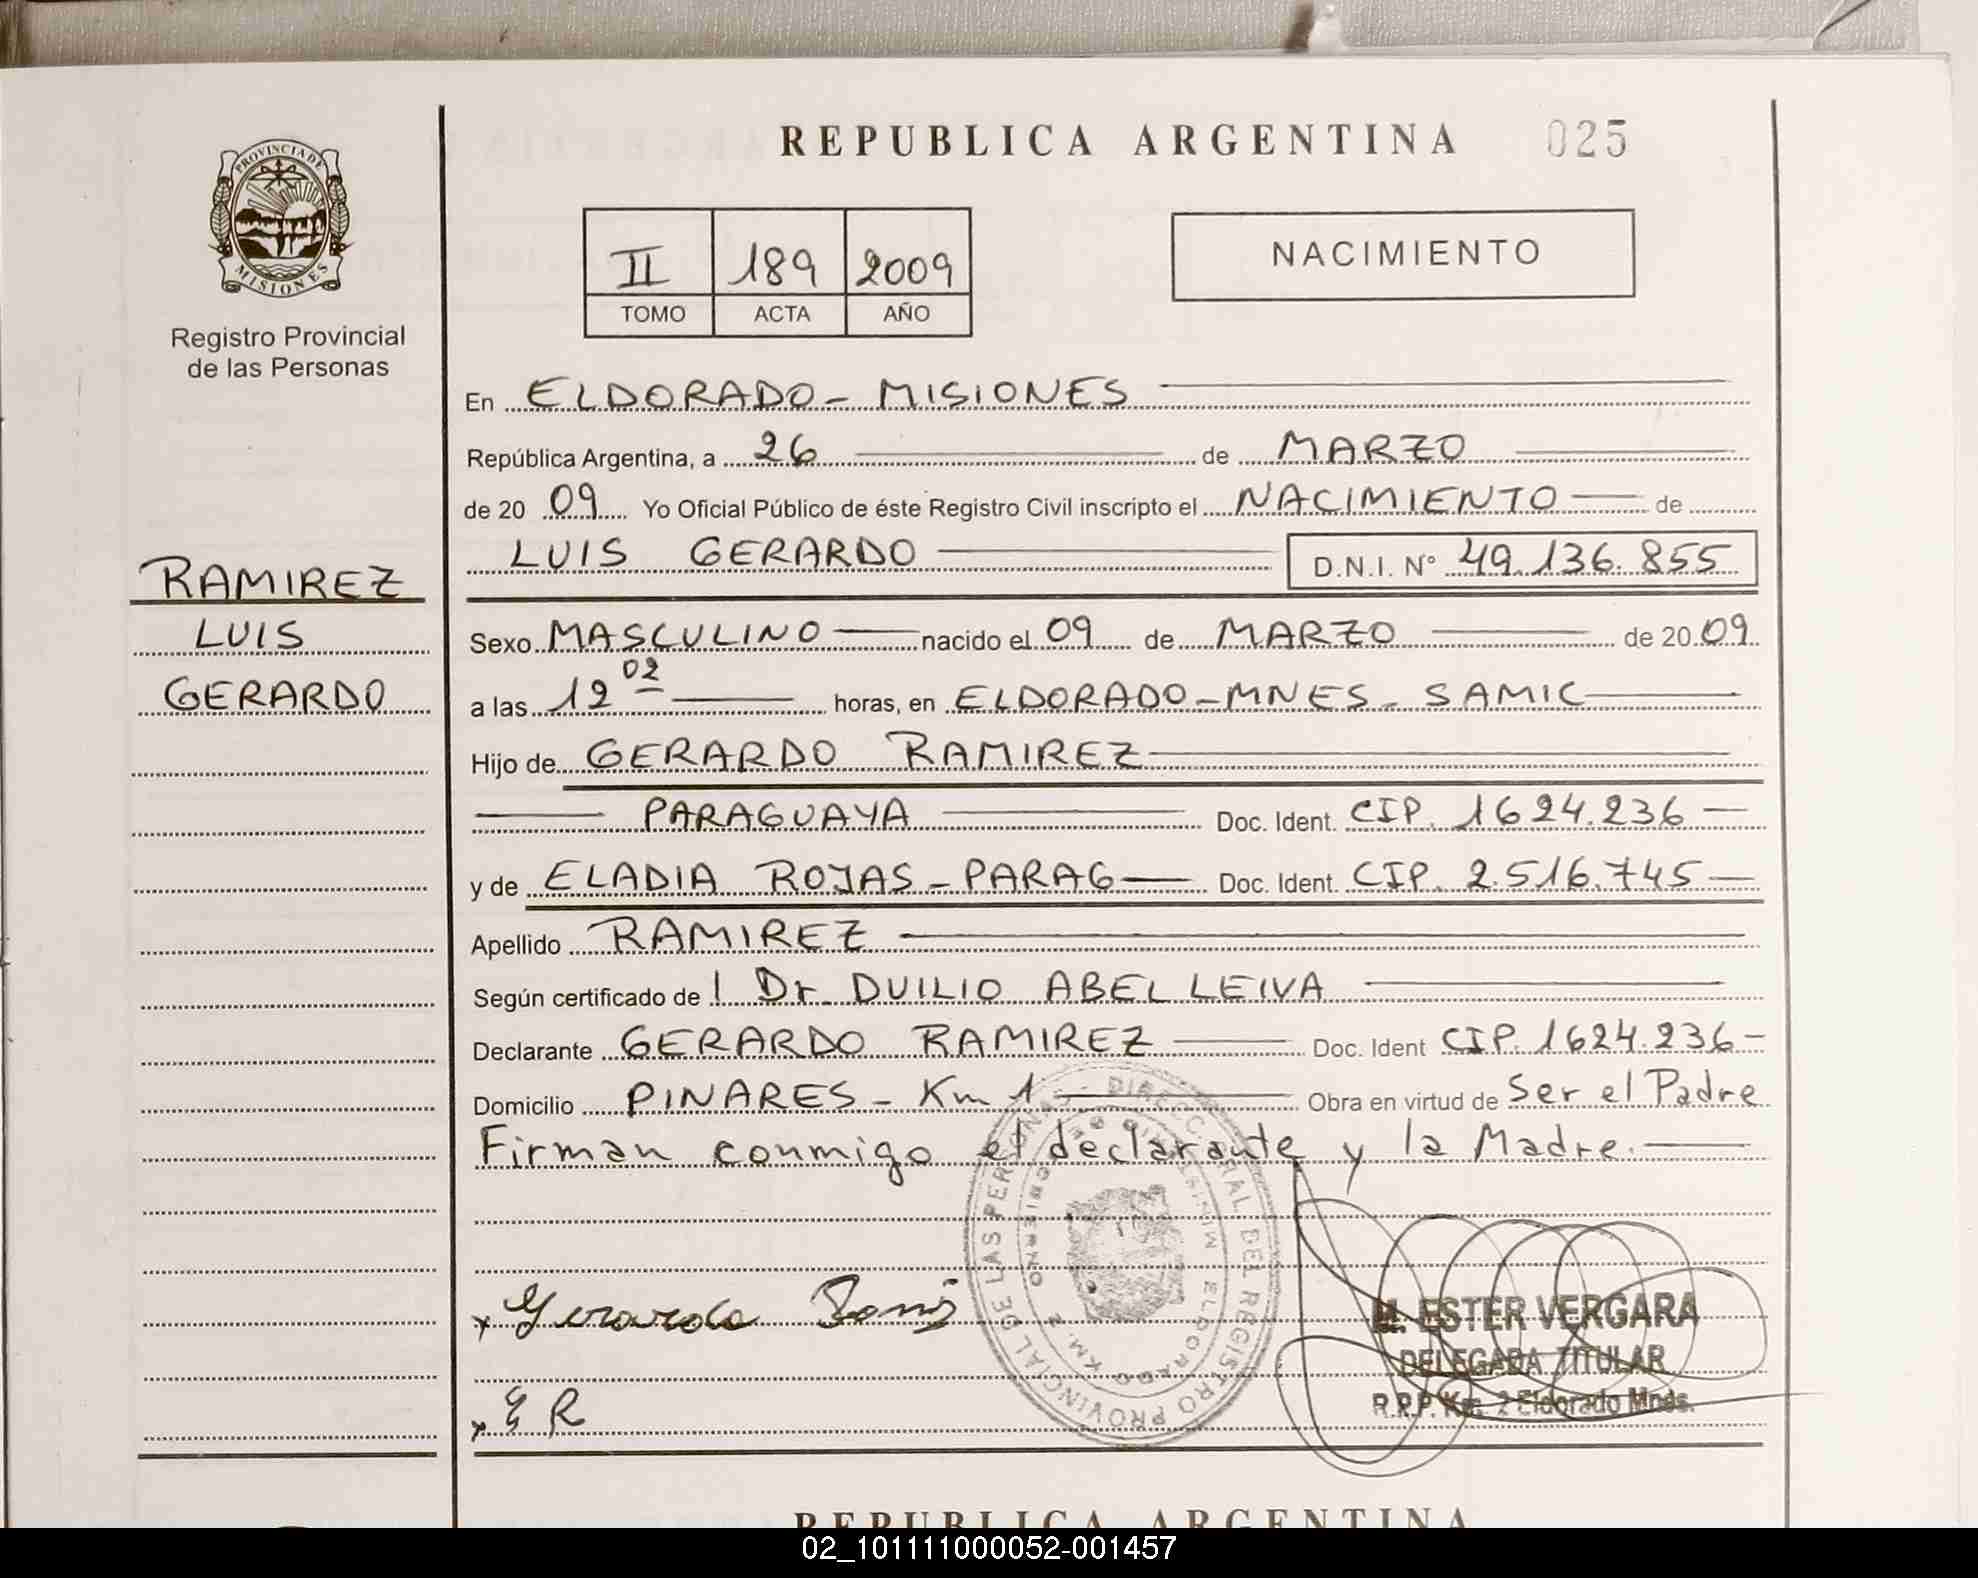 REPUBLICA ARGENTINA 025
PROVINCIA DE
MISIONES
Registro Provincial
de las Personas
II 189 2009
TOMO ACTA AÑO
NACIMIENTO
En ELDORADO - MISIONES
República Argentina, a 26 de MARZO
de 20 09 Yo Oficial Público de éste Registro Civil inscripto el NACIMIENTO de
LUIS GERARDO D.N.I. Nº 49.136.855
RAMIREZ
LUIS
GERARDO
Sexo MASCULINO nacido el 09 de MARZO de 20 09
a las 12 02 horas, en ELDORADO - MNES - SAMIC
Hijo de GERARDO RAMIREZ
PARAGUAYA Doc. Ident. CIP. 1624.236
y de ELADIA ROJAS - PARAG Doc. Ident. CIP. 2.516.745
Apellido RAMIREZ
Según certificado de l Dr. DUILIO ABEL LEIVA
Declarante GERARDO RAMIREZ Doc. Ident CIP. 1624.236
Domicilio PINARES - Km 1 Obra en virtud de Ser el Padre
Firman conmigo el declarante y la Madre.
x Gerardo
x E R
DEL REGISTRO PROVINCIAL DE LAS PERSONAS
ELDORADO KM. 2
M. ESTER VERGARA
DELEGADA TITULAR
R.R.P. Km. 2 Eldorado Mnes.
REPUBLICA ARGENTINA
02_101111000052-001457